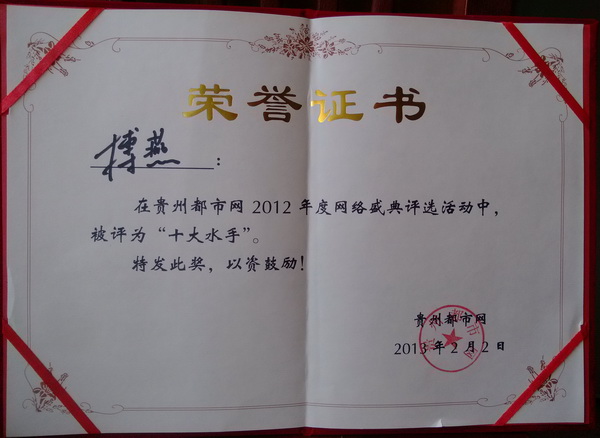 荣誉证书
樽燕：
在贵州都市网2012年度网络盛典评选活动中，
被评为“十大水手”。
特发此奖，以资鼓励！
贵州都市网
2013年2月2日